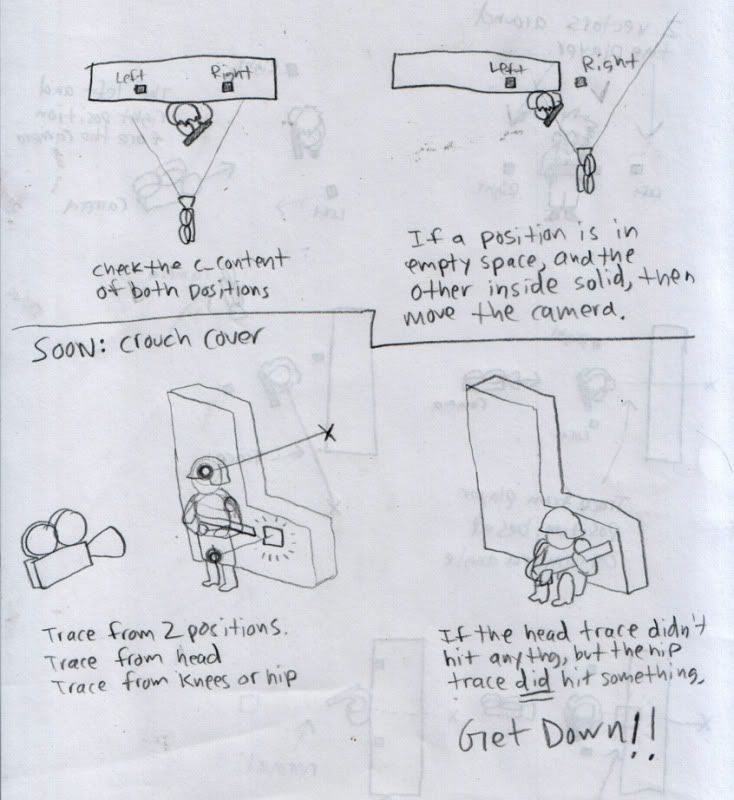 Left Right
check the c_content
of both positions
Left Right
If a position is in
empty space, and the
other inside solid, then
move the camera.
SOON: Crouch Cover
Trace from 2 positions.
Trace from head
Trace from Knees or hip
If the head trace didn't
hit anythg, but the hip
trace did hit something.
Get Down!!